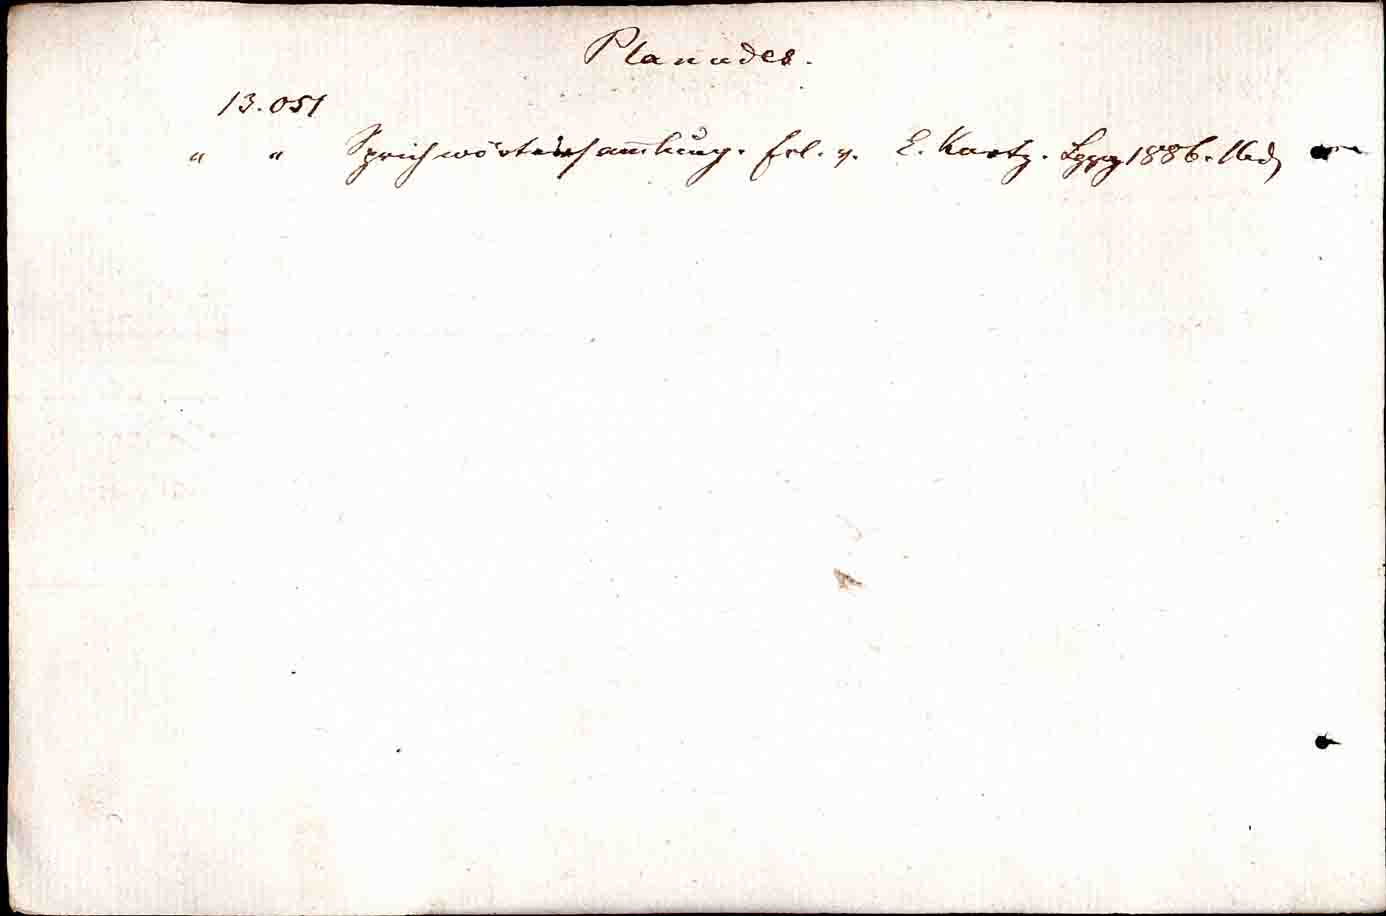 Planudes.
13.051
" " Sprichwörtersammlung. Erl. v. E. Kurtz. Lpzg 1886.